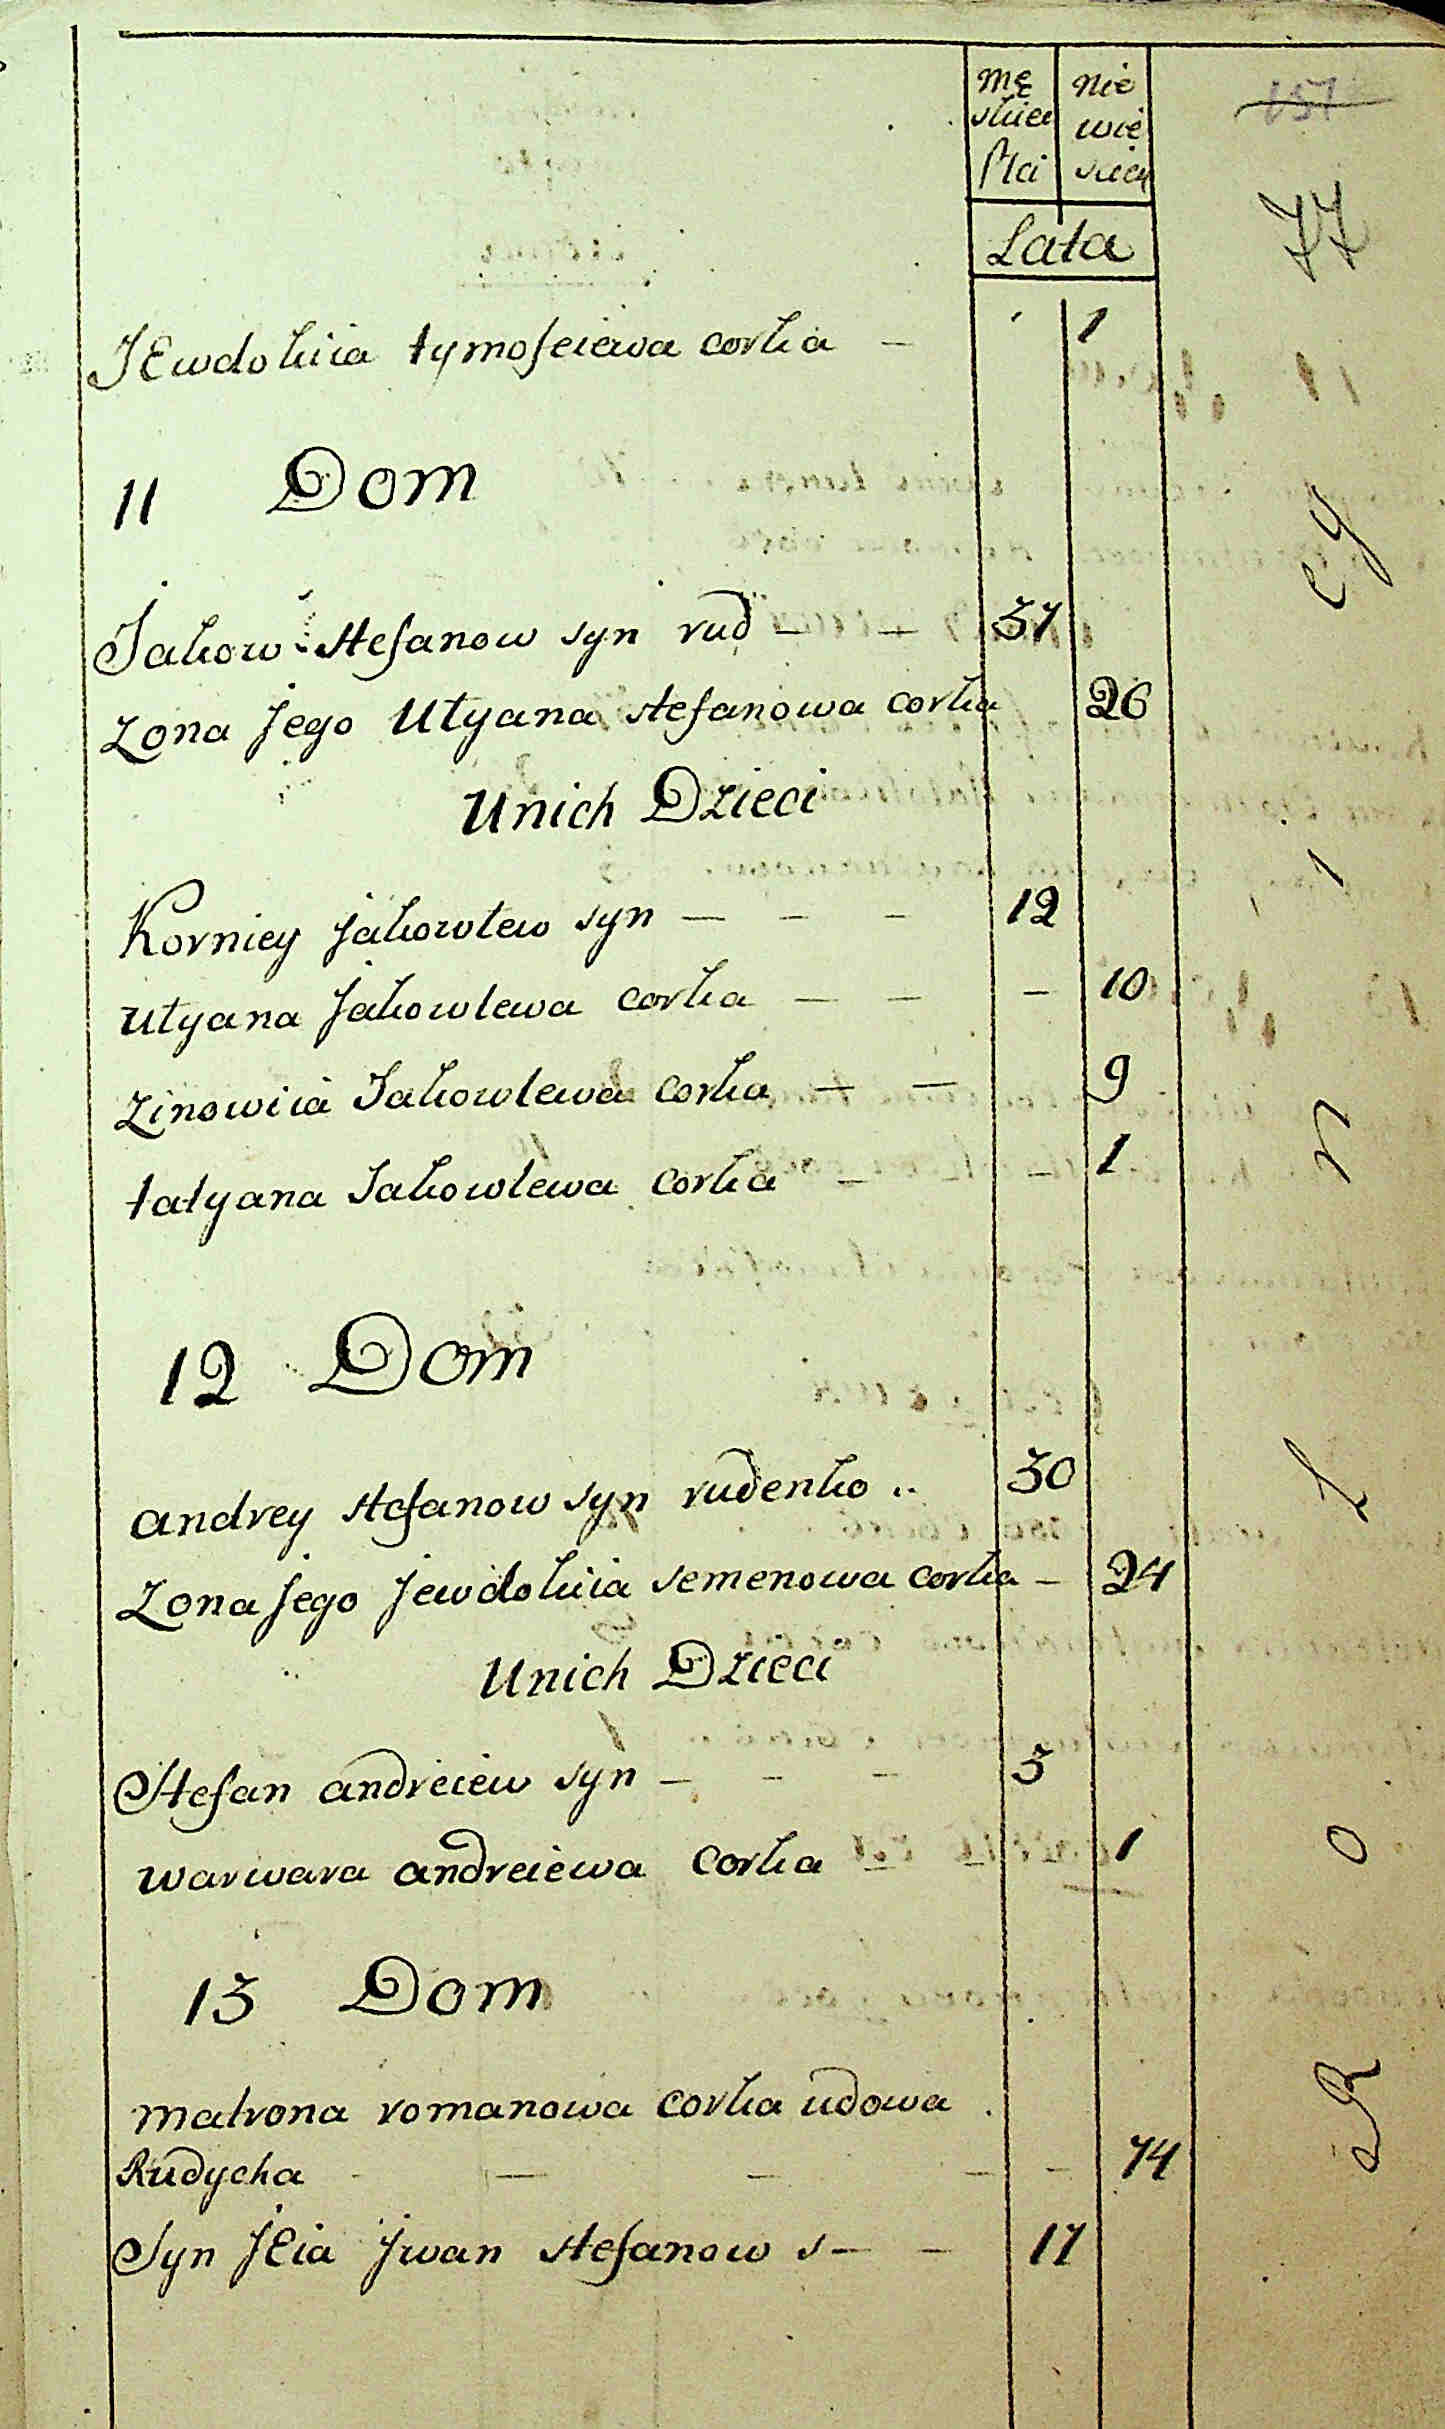 mę nie
skiei wie
Płci sciey
Lata
157
77
JEwdokiia tymofeiewa corka – 1
11 Dom
Jakow stefanow syn rud – – 37
Zona Jego Utyana stefanowa corka 26
Unich Dzieci
Korniey Jakowlew syn – – – 12
Utyana Jakowlewa corka – – – 10
Zinowiia Jakowlewa corka – – 9
tatyana Jakowlewa corka – – 1
12 Dom
andrey stefanow syn rudenko .. 30
Zona Jego Jewdokiia semenowa corka – 24
Unich Dzieci
Stefan andreiew syn – – – 3
warwara andreiewa corka – – 1
13 Dom
matrona romanowa corka udowa .
Rudycha – – – – 74
Syn JEia Jwan stefanow s – – 17